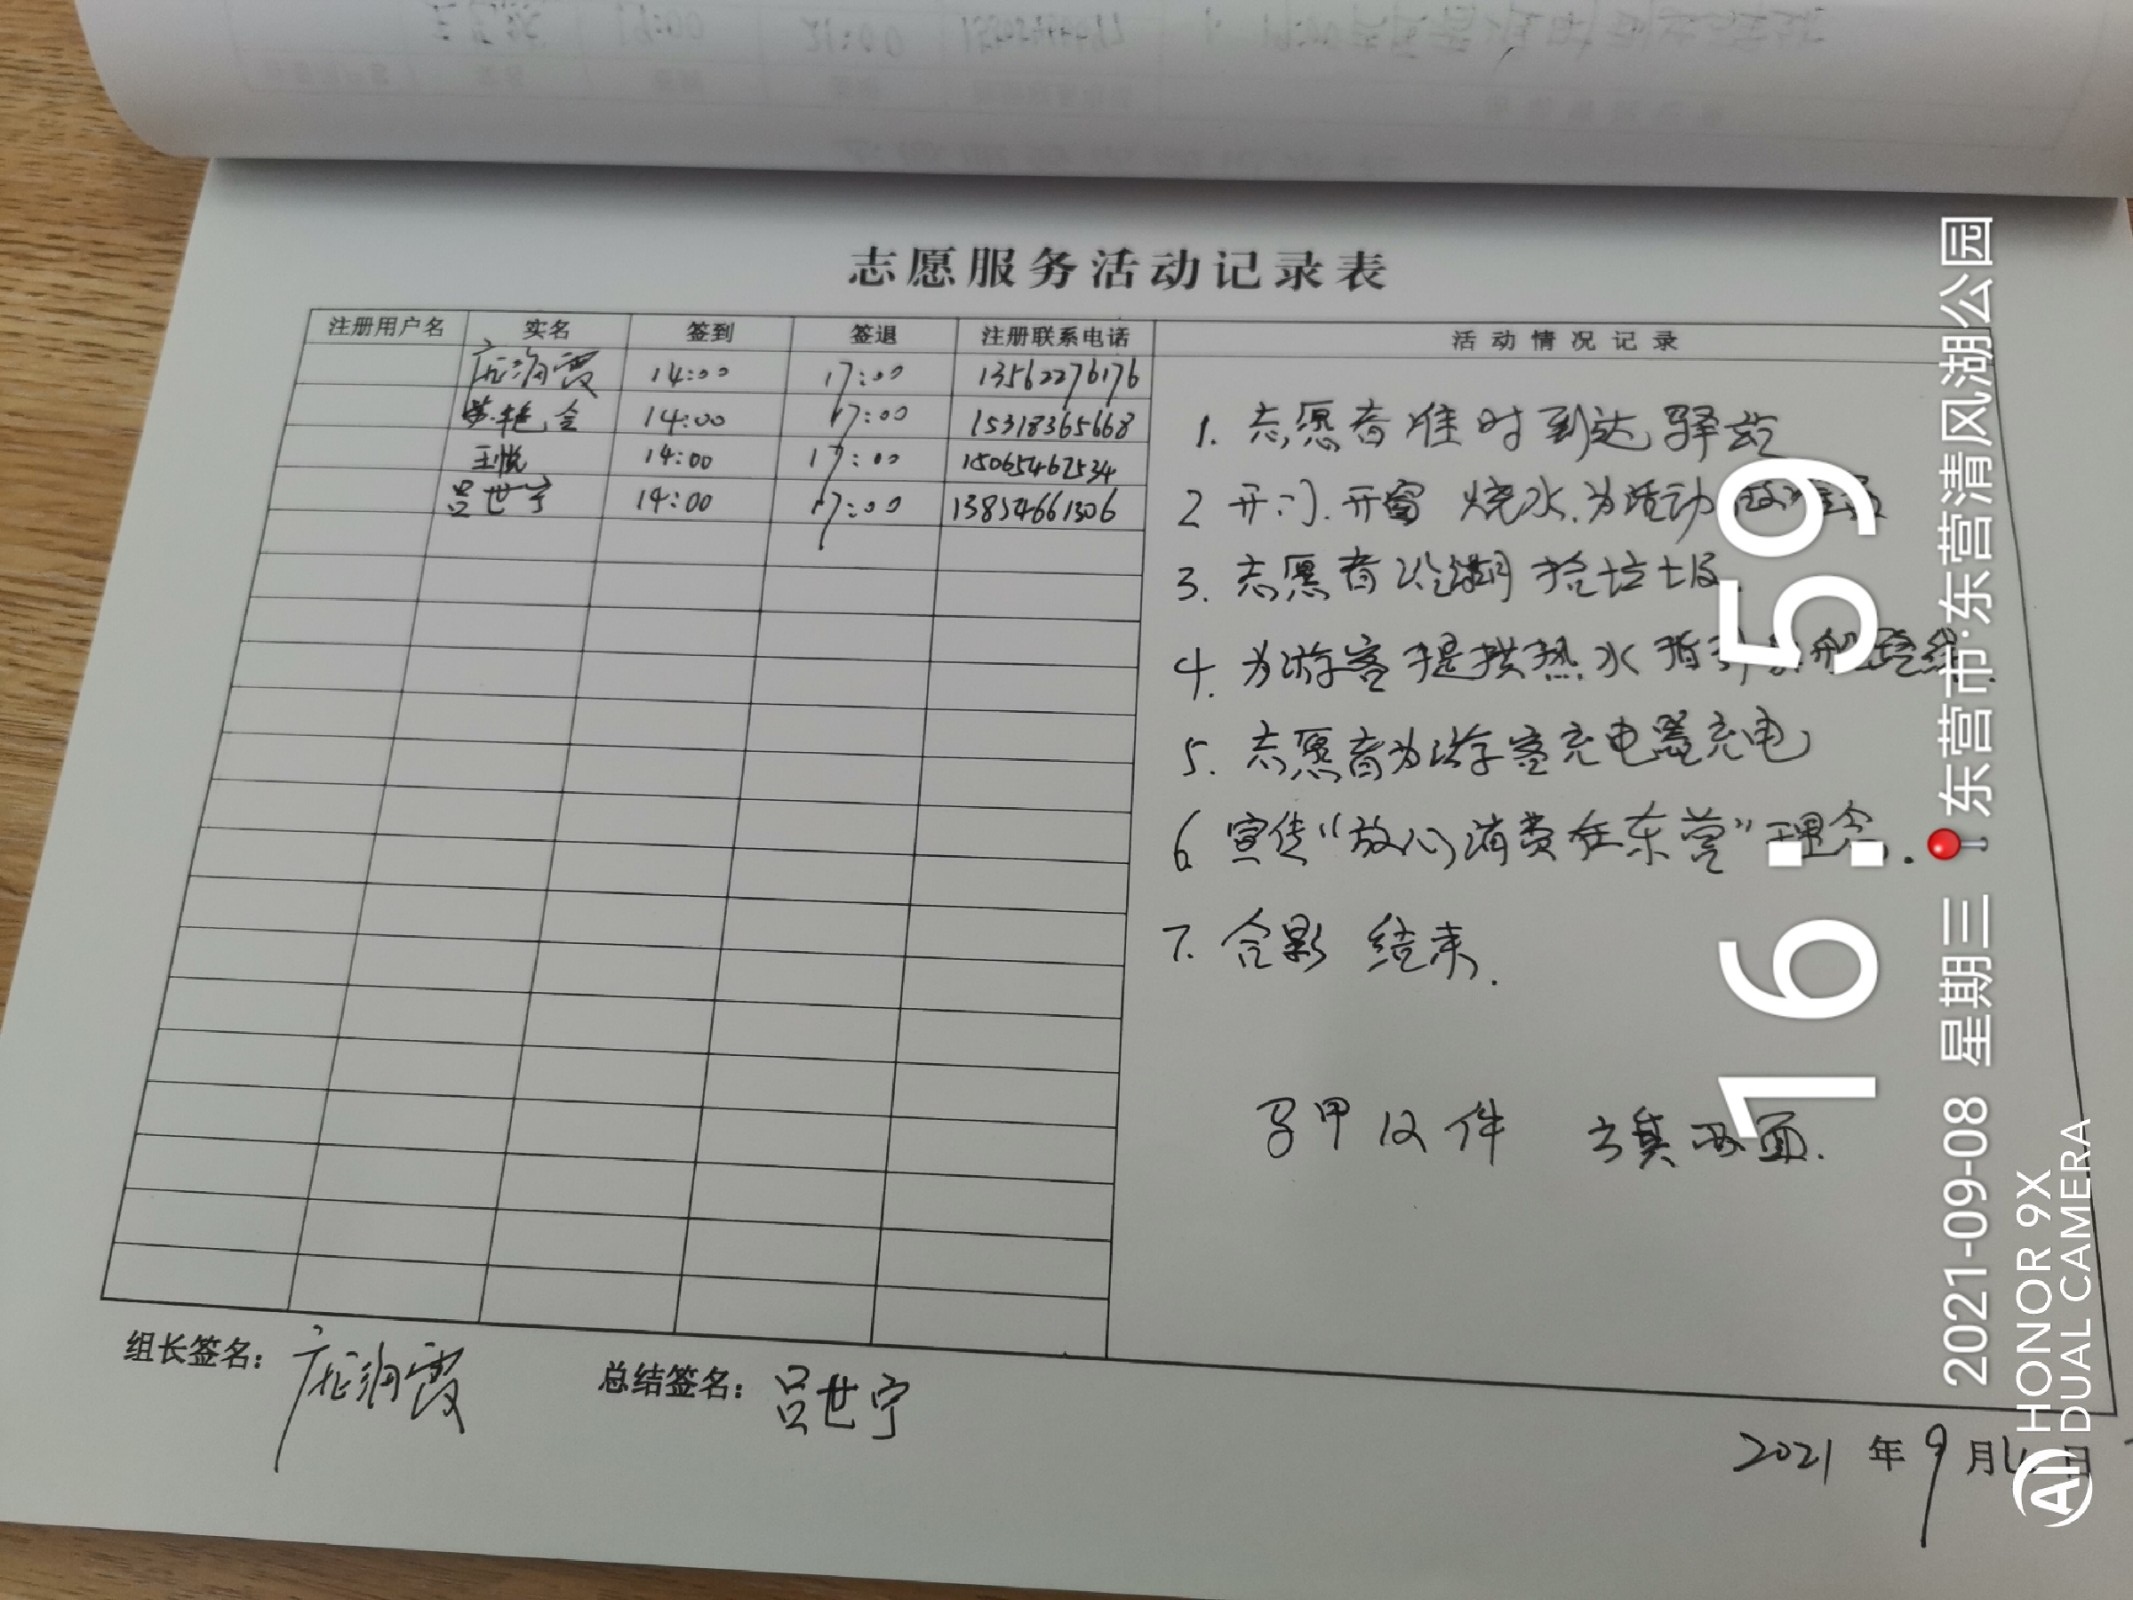 志愿服务活动记录表
注册用户名 实名 签到 签退 注册联系电话 活动情况记录
庞润霞 14:00 17:00 13562276176
艳 14:00 17:00 15318365668
王悦 14:00 17:00 15065462534
吕世宁 14:00 17:00 13854661306
1. 志愿者准时到达驿站
2 开门.开窗 烧水.为活动做准备
3. 志愿者沿湖捡垃圾.
4. 为游客提供热水 指引 路线.
5. 志愿者为游客充电器充电
6 宣传“放心消费在东营”理念.
7. 合影 结束.
马甲12件 旗两面.
组长签名: 庞润霞 总结签名: 吕世宁
2021 年 9 月 日
16:59
2021-09-08 星期三 东营市·东营清风湖公园
AI HONOR 9X
DUAL CAMERA